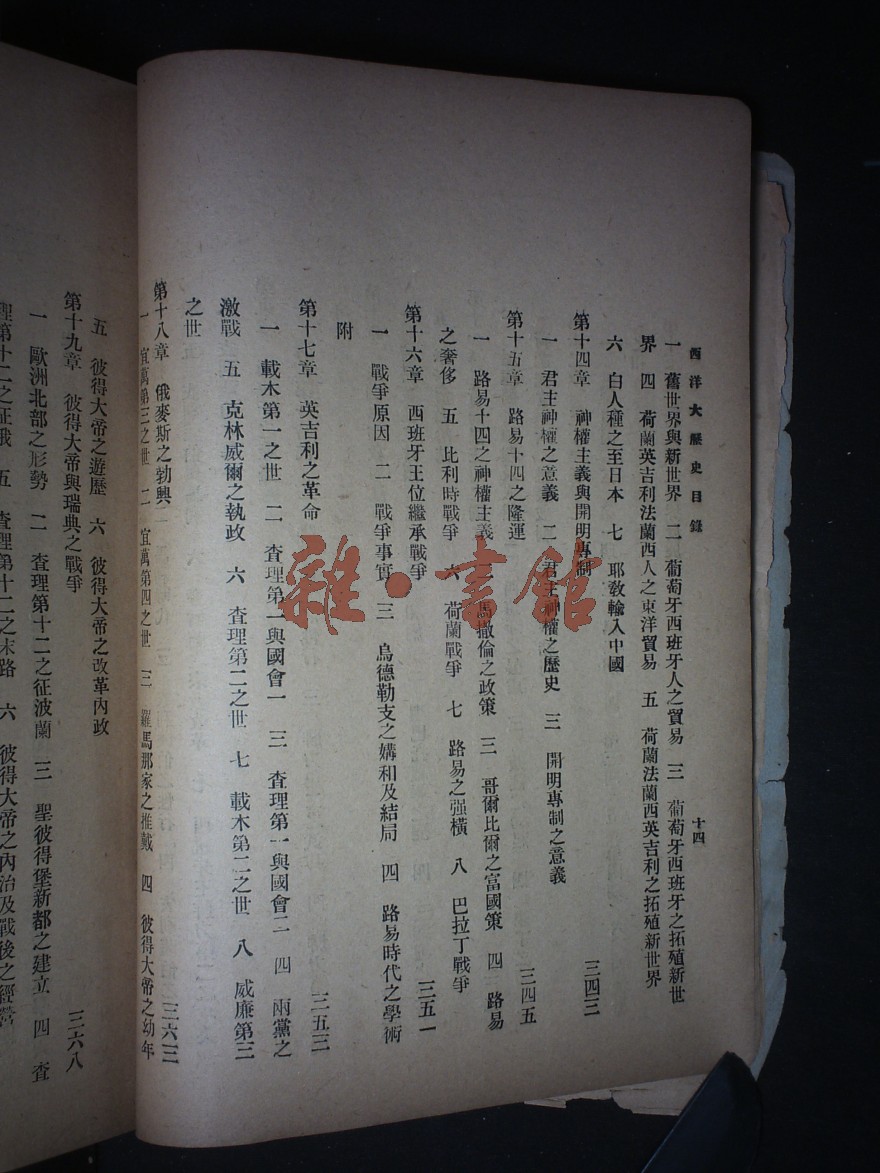 西洋大歷史目錄 十四
一 舊世界與新世界 二 葡萄牙西班牙人之貿易 三 葡萄牙西班牙之拓殖新世
界 四 荷蘭英吉利法蘭西人之東洋貿易 五 荷蘭法蘭西英吉利之拓殖新世界
六 白人種之至日本 七 耶敎輸入中國
第十四章 神權主義與開明專制 三四三
一 君主神權之意義 二 君主神權之歷史 三 開明專制之意義
第十五章 路易十四之隆運 三四五
一 路易十四之神權主義 二 馬撒倫之政策 三 哥爾比爾之富國策 四 路易
之奢侈 五 比利時戰爭 六 荷蘭戰爭 七 路易之强橫 八 巴拉丁戰爭
第十六章 西班牙王位繼承戰爭 三五一
一 戰爭原因 二 戰爭事實 三 烏德勒支之媾和及結局 四 路易時代之學術
附
第十七章 英吉利之革命 三五三
一 載木第一之世 二 査理第一與國會一 三 査理第一與國會二 四 兩黨之
激戰 五 克林威爾之執政 六 査理第二之世 七 載木第二之世 八 威廉第三
之世
第十八章 俄麥斯之勃興 三六三
一 宜萬第三之世 二 宜萬第四之世 三 羅馬那家之推戴 四 彼得大帝之幼年
五 彼得大帝之遊歷 六 彼得大帝之改革內政
第十九章 彼得大帝與瑞典之戰爭 三六八
一 歐洲北部之形勢 二 査理第十二之征波蘭 三 聖彼得堡新都之建立 四 査
理第十二之征俄 五 査理第十二之末路 六 彼得大帝之內治及戰後之經營
雜·書館